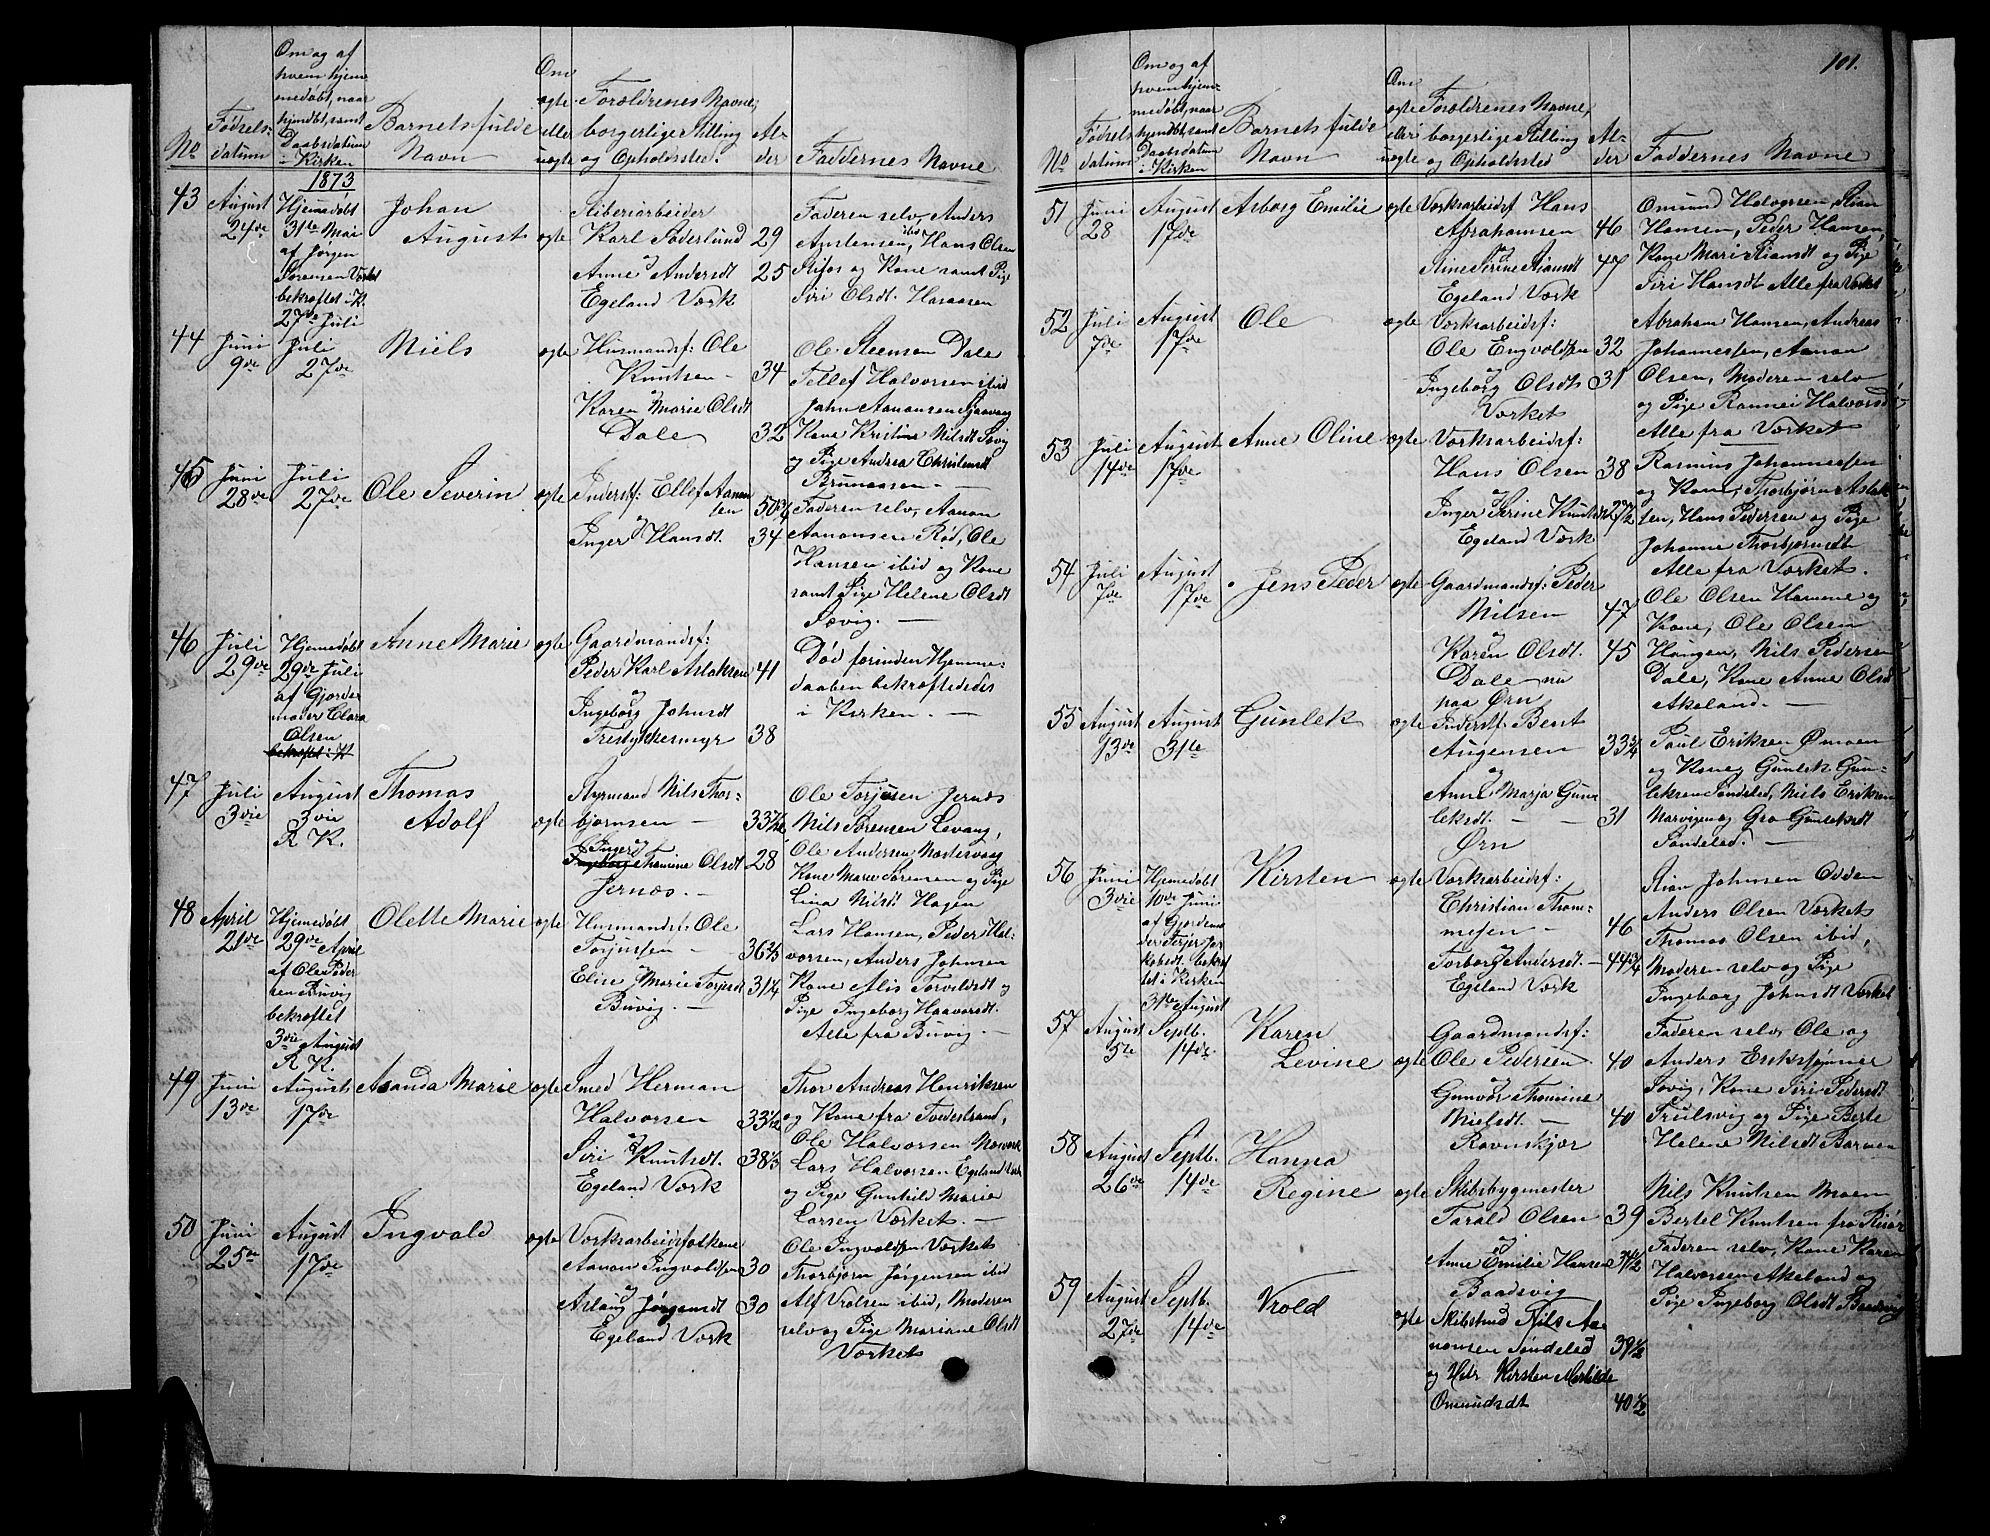 No
Fødsels-
datum
Om og af
hvem hjem-
medøbt, naar
hjemdøbt, samt
Daabsdatum
i Kirken
Barnets fulde
Navn
Om
ægte
eller
uægte
Forældrenes Navne,
borgerlige Stilling
og Opholdssted.
Al-
der
Faddernes Navne
1873
43
August
24de
Hjemmedøbt
31te Mai
af Jørgen
Sørensen Værket
bekræftet i K.
27de Juli
Johan
August
ægte
Karl Søderlund
Anne Andersdt
Egeland Værk
29
25
Faderen selv, Anders
Hans Olsen
og Kone samt Pige
Siri Olsdt. Haraasen
44
Juni
9de
Juli
27de
Niels
ægte
Husmandsf: Ole
Knutsen
Karen Marie Olsdt
Dale
34
32
Ole Steensen Dale
Tellef Halvorsen ibid
John Aanonsen
Kone Kristine Nilsdt Søvig
og Pige Andrea Christensdt
45
Juni
28de
Juli
27de
Ole Severin
ægte
Inderstf: Ellef Aanon
sen
Inger Hansdt.
50 3/4
34
Faderen selv, Aanon
Aanonsen Rød, Ole
Hansen ibid og Kone
samt Pige Helene Olsdt
Søvig.
46
Juli
29de
Hjemmedøbt
29de Juli
af Gjorde
moder Clara
Olsen
bekræft: i K
Anne Marie
ægte
Gaardmandsf:
Peder Karl Aslaksen
og
Ingeborg Johnsdt
Trestykkemyr
41
38
Død forinden Hjemme-
daaben bekræftedes
i Kirken.
47
Juli
3die
August
3die
R. K.
Thomas
Adolf
ægte
Styrmand Nils Thor-
bjørnsen
Ingerd
Ingeborg Tomine Olsdt
Jernæs.
28
Ole Torjusen Jernæs
Nils Sørensen Levang,
Ole Andersen
Kone Marie Sørensen og Pige
Lina Nilsdt Hagen
48
April
21de
Hjemmedøbt
29de April
af Ole Peder
sen Buvig
bekræftet
3die August
R. K.
Olette Marie
ægte
Husmandsf. Ole
Torjussen
Elise Marie Torjusdt
Buvig.
31 1/4
Lars Hansen, Peder Hal-
vorsen, Anders Johnsen
Kone Alis Torvildsdt og
Pige Ingeborg Haavorsdt.
Alle fra Buvig.
49
Juni
13de
August
17de
Amanda Marie
ægte
Smed Herman
Halvorsen
og
Siri Knutsdt.
Egeland Værk
38 1/3
Thor Andreas Henriksen
og Kone fra Tvedestrand,
Ole Halvorsen
Lars Halvorsen Egeland Værk
og Pige Gunhild Marie
Larsen Værket.
50
Juni
25de
August
17de
Ingvald
ægte
Værksarbeidsfolkene
Aanon Ingvoldsen
og
Aslaug Jørgensdt
Egeland Værk
30
30
Ole Ingvoldsen Værket
Thorbjørn Jørgensen ibid
Alf Vrolsen ibid, Moderen
selv og Pige Mariane Olsdt
Værket
101.
No
Fødsels
datum
Om og af
hvem hjem-
medøbt, naar
hjemdøbt, samt
Daabsdatum
i Kirken
Barnets fulde
Navn
Om
ægte
eller
uægte
Forældrenes Navne,
borgerlige Stilling
og Opholdssted
Al-
der
Faddernes Navne
51
Juni
28
August
17de
Asborg Emilie
ægte
Værksarbeidsf Hans
Abrahamsen
og
Stine Serine Stiansdt
Egeland Værk
46
47
Omund Halvorsen, Stian
Hansen, Peder Hansen,
Kone Mari Stiansdt og Pige
Siri Hansdt Alle fra Værket
52
Juli
7de
August
17de
Ole
ægte
Værksarbeidsf:
Ole Engvoldsen
og
Ingeborg Olsdt
Værket
32
31
Abraham Hansen, Andreas
Johannessen, Aanon
Olsen, Moderen selv
og Pige Rannei Halvorsdt
Alle fra Værket
53
Juli
14de
August
17de
Anne Oline
ægte
Værksarbeidsf:
Hans Olsen
og
Inger Serine Knutsdt
Egeland Værk
38
27 1/2
Rasmus Johannessen
og Kone, Thorbjørn Aslak
sen, Hans Pedersen og Pige
Johanne Thorbjørnsdt
Alle fra Værket.
54
Juli
7de
August
17de
Jens Peder
ægte
Gaardmandsf: Peder
Nilsen
og
Karen Olsdt.
Dale nu
paa Ørn
47
45
Ole Olsen Hamme og
Kone, Ole Olsen
Haugen, Nils Pedersen
Dale, Kone Anne Olsdt
Akeland.
55
August
13de
August
31te
Gunlek
ægte
Inderstf. Bent
Augensen
og
Anne Marja Gun
leksdt.
Ørn
33 3/4
31
Paul Eriksen Ømoen
og Kone, Gunlek Gun-
leksen Søndeled, Niels Eriksen
Narvigen og Gro Gunleksdt
Søndeled.
56
Juni
3die
Hjemmedøbt
10de Juni
af Gjordemo
der Terjer Ja
kobsdt. bekræf
tet i Kirken
31te August
Kirsten
ægte
Værksarbeidsf:
Christian Thom-
mesen
og
Torborg Andersdt.
Egeland Værk
46
44 3/4
Stian Johnsen Odden
Anders Olsen Værket
Thomas Olsen ibid,
Moderen selv og Pige
Ingeborg Johnsdt Værket
57
August
5te
Septb.
14de
Karen
Levine
ægte
Gaardmandsf:
Ole Pedersen
og
Gunvor Thomine
Nielsdt.
Ravnskjær
40
40
Faderen selv, Ole og
Anders
Søvig, Kone Siri Pedersdt
Trulsvig og Pige Berte
Helene Nilsdt Barmen
58
August
26de
Septb.
14de
Hanna
Regine
ægte
Skibsbygmester
Tarald Olsen
og
Anne Emilie Hansen
Baadsvig
39
34 1/2
Nils Knutsen Moen
Bertel Knutsen fra Risør
Faderen selv, Kone Karen
Halvorsen Akeland og
Pige Ingeborg Olsdt Baadsvig
59
August
27de
Septb.
14de
Vrold
ægte
Skibstmd Nils Aa-
nonsen Søndeled
og Hstr Kirsten Mathilde
Omundsdt
39 1/2
40 1/2